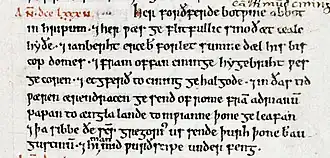 Añ. dcc lxxxu. Her forðferde botpine abbot
in hripum. ⁊ her pæs ge flitfullic sinoð æt cealc
hyðe. ⁊ ianberht erceb forlet sumne dæl his bis
cop domes. ⁊ fram offan cininge hygebriht pæs
ge coren. ⁊ ecgferð to cining ge halgode. ⁊ in ðas tid
pæren ærendracen ge send of rome frã adrianum
papan to ængla lande to nipianne þone ge leafan
⁊ ða sibbe ðe scs̃ gregorius us sende þurh þone bau
gustinum. ⁊ hi man mid purðscipe under feng.